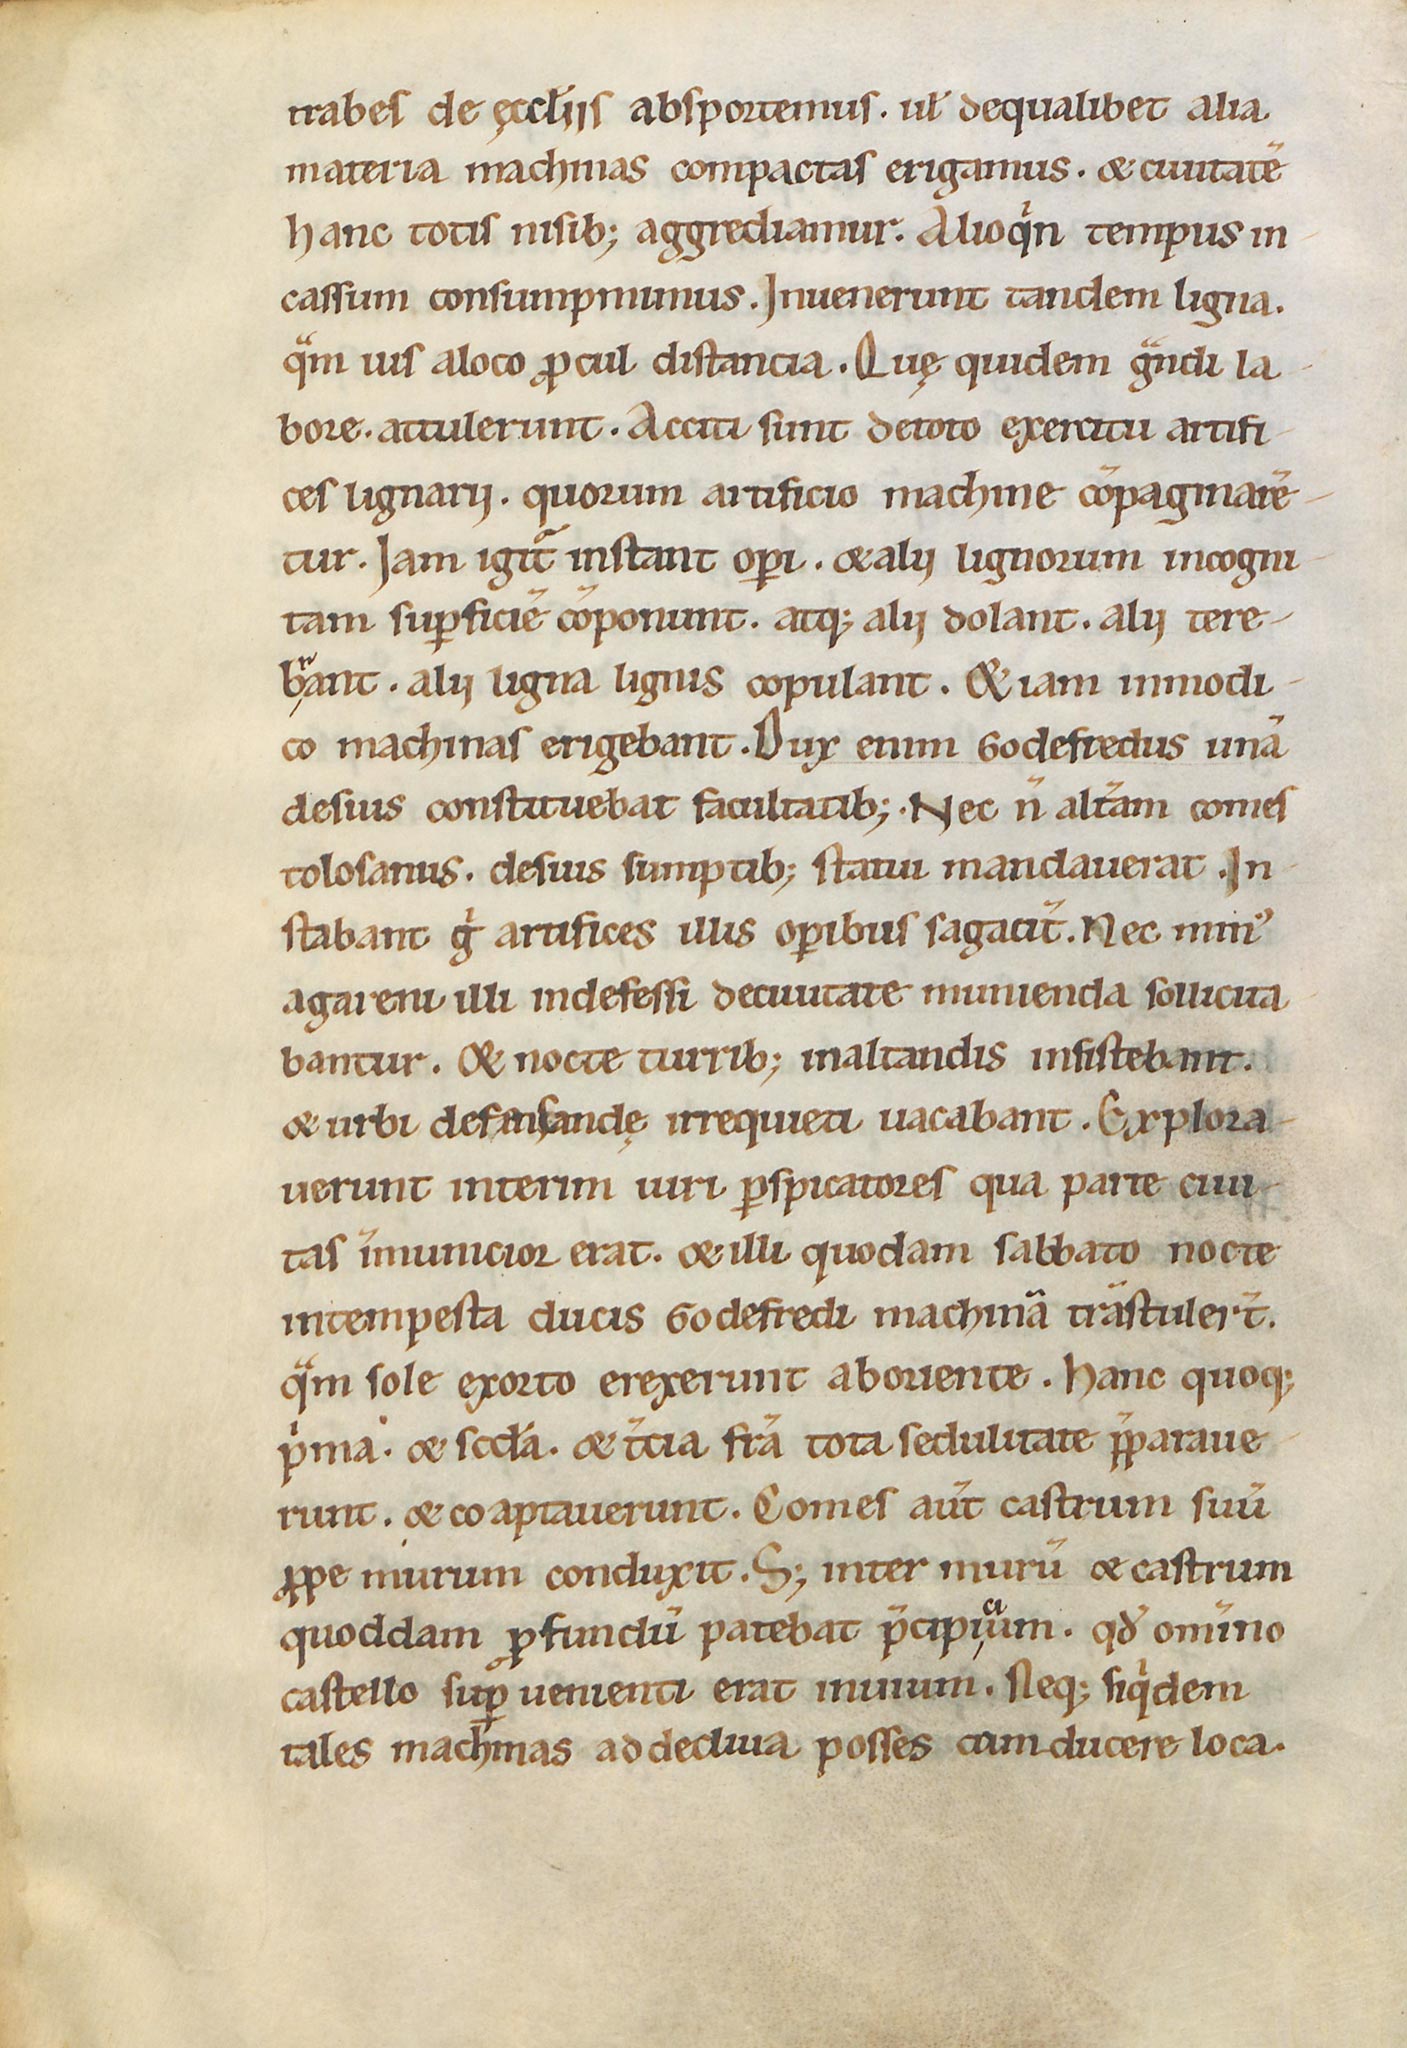 trabes de ęccłiis absportemus. uł dequalibet alia
materia machinas compactas erigamus. & ciuitatē
hanc totis nisib; aggrediamur. Alioqͥn tempus in
cassum consumpmimus. Inuenerunt tandem ligna.
qᷓm uis aloco ꝓcul distancia. Quę quidem gᷓndi la
bore. attulerunt. Acciti sunt detoto exercitu artifi-
ces lignarij. quorum artificio machine cōpaginarē-
tur. Jam igit᷑ instant oꝑi. & alij lignorum incogni-
tam suꝑficiē cōponunt. atq; alij dolant. alij tere-
bᷓnant. alij ligna lignis copulant. & iam inmodi-
co machinas erigebant. Dux enim Godefredus unā
desuis constituebat facultatib;. Nec n̄ alt̄am comes
tolosanus. desuis sumptib; statui mandauerat. In-
stabant gͥ artifices illis oꝑibus sagacit᷑. Nec minꝰ
agareni illi indefessi deciuitate munienda sollicita
bantur. & nocte turrib; inaltandis insistebant.
& urbi defensandę irrequieti uacabant. Explora-
uerunt interim uiri ꝑspicatores qua parte ciui-
tas īmunicior erat. & illi quodam sabbato nocte
intempesta ducis Godefredi machinā trāstuler̄t.
qᷓm sole exorto erexerunt aboriente. hanc quoq;
pͥma. & sccďa. & t̄cia frā tota sedulitate p̄paraue-
runt. & coaptauerunt. Comes aūt castrum suū
ꝓpe murum conduxit. S; inter murū & castrum
quoddam ꝓfundū patebat p̄cipicium. qđ omīno
castello suꝑuenienti erat inuium. Neq; siqͥdem
tales machinas ad decliuia posses cum ducere loca.